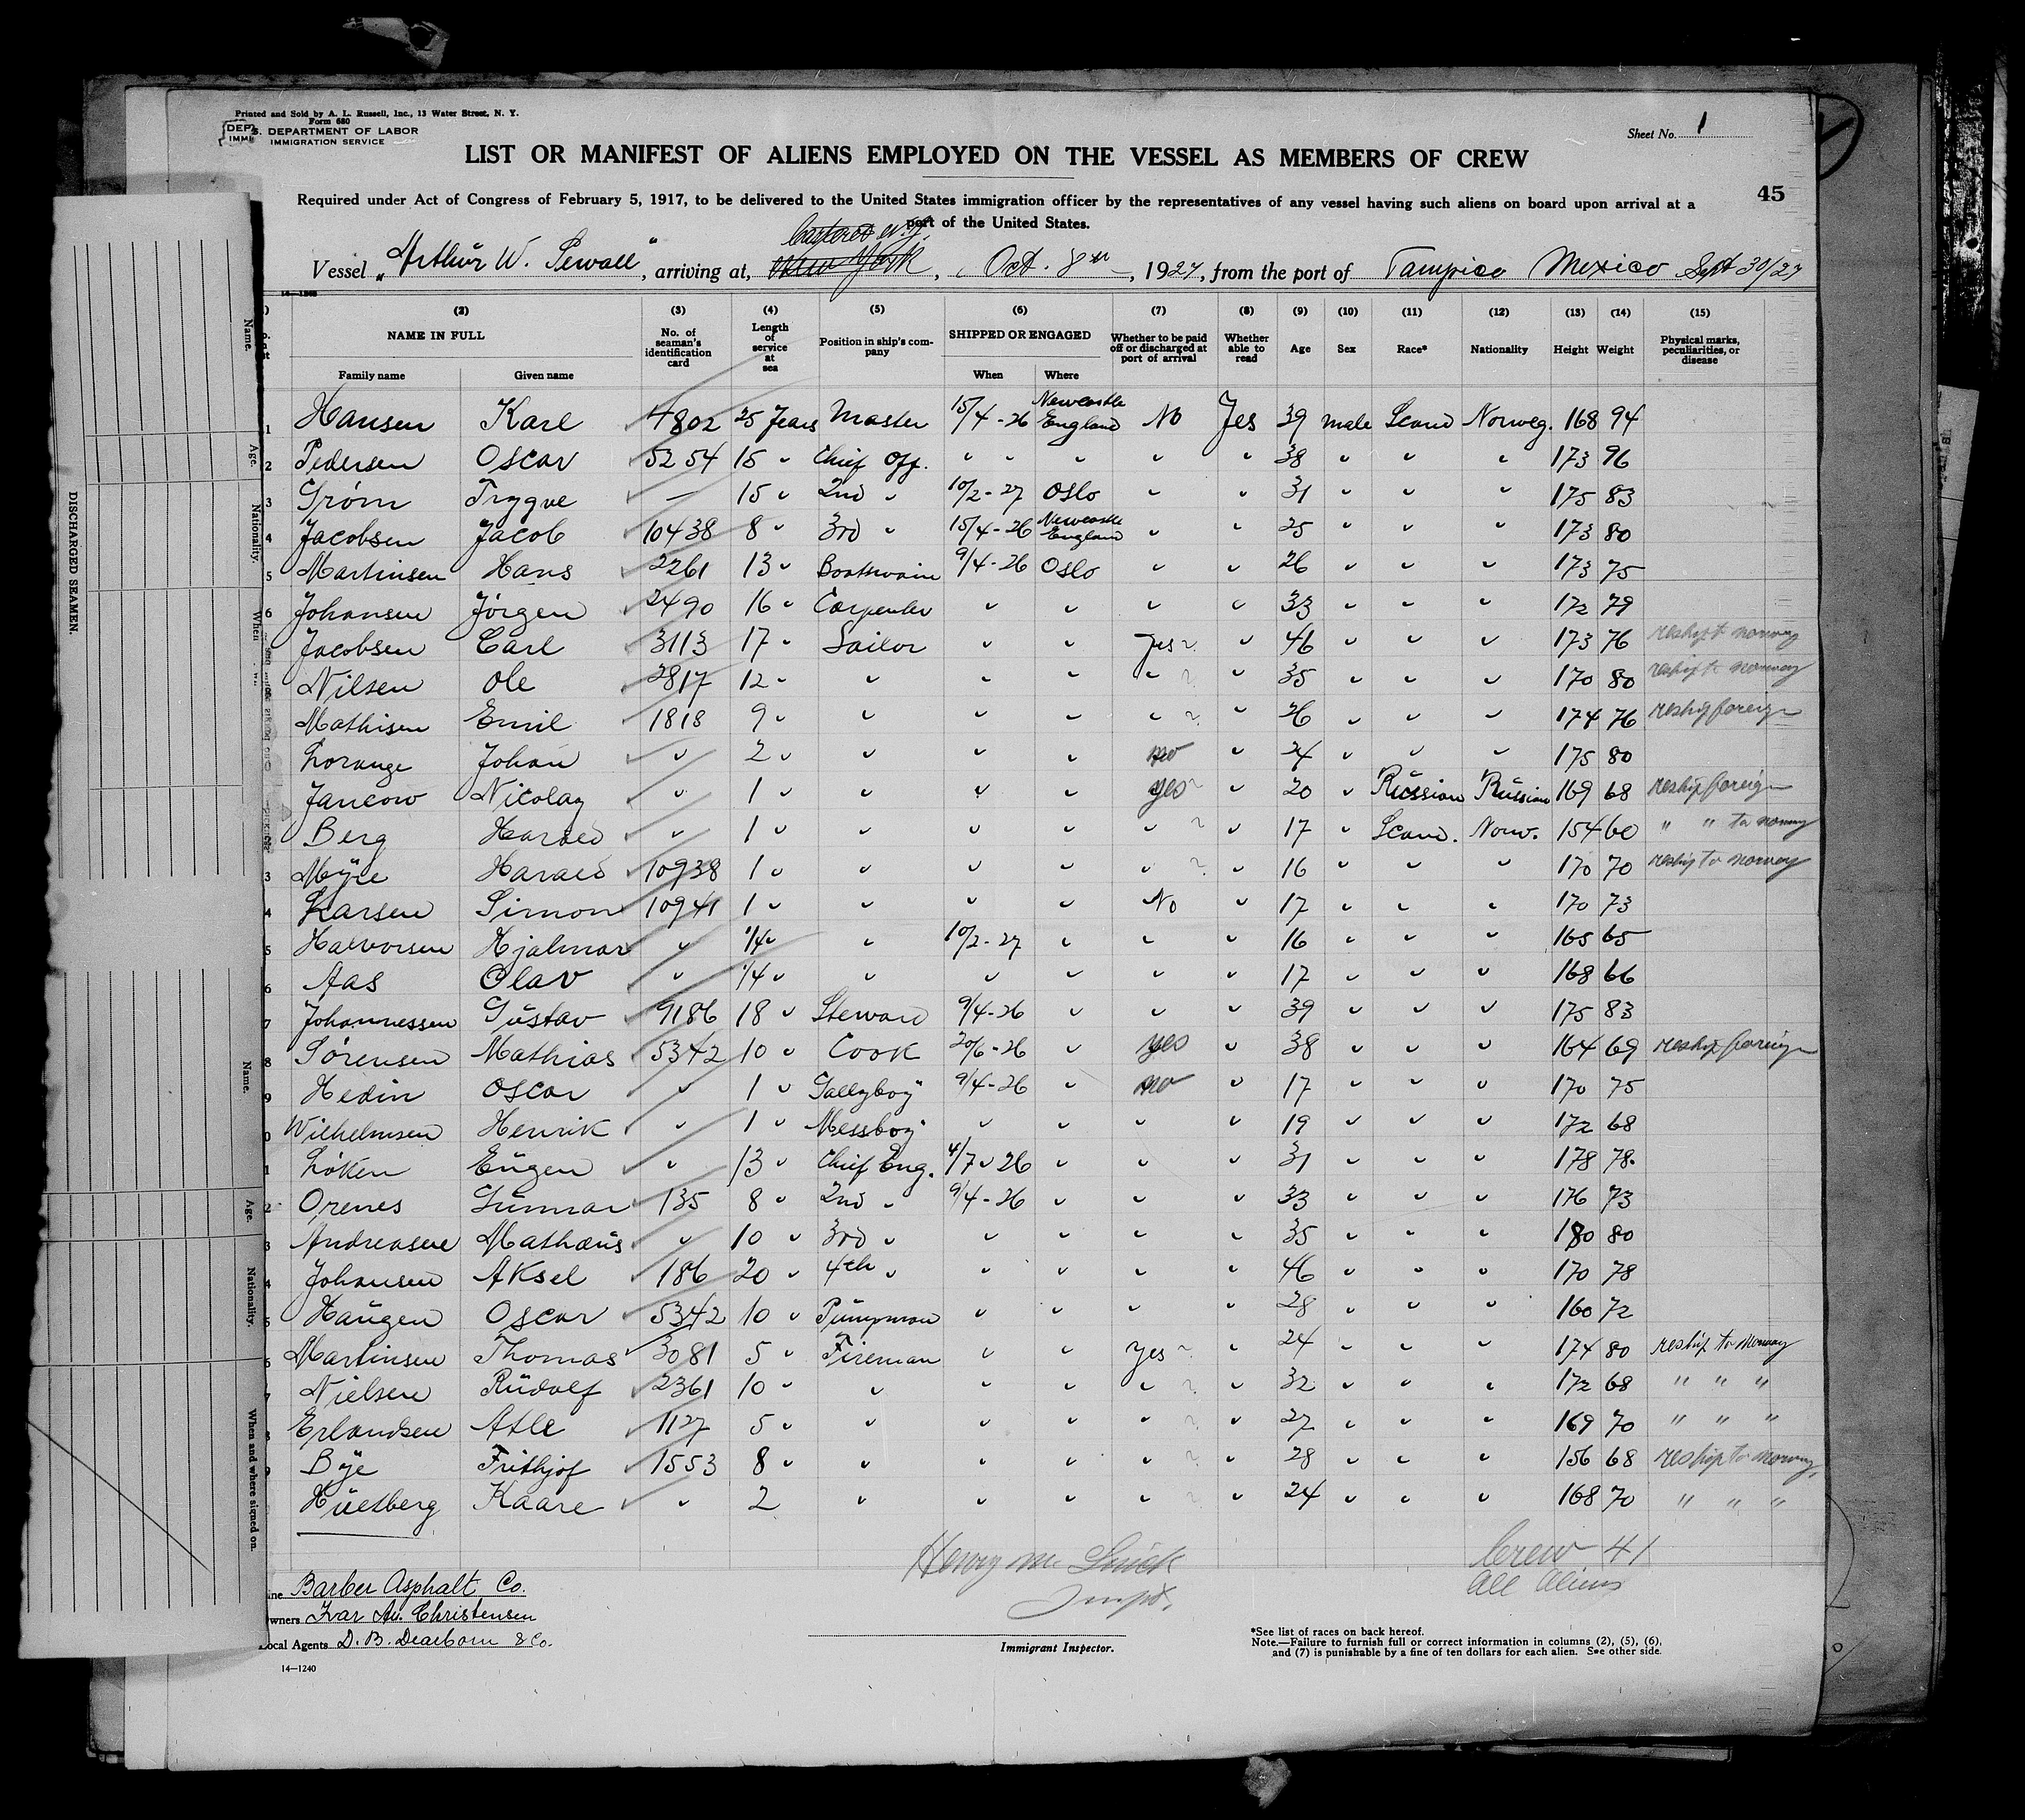 Printed and Sold by A. L. Russell, Inc., 13 Water Street, N. Y.
Form 680
S. DEPARTMENT OF LABOR
IMMIGRATION SERVICE
Sheet No. 1
LIST OR MANIFEST OF ALIENS EMPLOYED ON THE VESSEL AS MEMBERS OF CREW
Required under Act of Congress of February 5, 1917, to be delivered to the United States immigration officer by the representatives of any vessel having such aliens on board upon arrival at a
port of the United States.
45
Carteret N.J.
Vessel „Arthur W. Sewall", arriving at, New York, Oct. 8th, 1927, from the port of Tampico Mexico Sept 30/27
(2) (3) (4) (5) (6) (7) (8) (9) (10) (11) (12) (13) (14) (15)
NAME IN FULL No. of seaman's identification card Length of service at sea Position in ship's company SHIPPED OR ENGAGED Whether to be paid off or discharged at port of arrival Whether able to read Age Sex Race* Nationality Height Weight Physical marks, peculiarities, or disease
Family name Given name When Where
1 Hansen Karl 4802 25 Years Master 15/4-26 Newcastle England No Yes 39 male Scand Norweg. 168 94
2 Pedersen Oscar 5254 15 " Chief Off. " " " " " 38 " " " 173 96
3 Strøm Trygve — 15 " 2nd " 10/2-27 Oslo " " 31 " " " 175 83
4 Jacobsen Jacob 10438 8 " 3rd " 15/4-26 Newcastle England " " 25 " " " 173 80
5 Martinsen Hans 2261 13 " Boatswain 9/4-26 Oslo " " 26 " " " 173 75
6 Johansen Jørgen 2490 16 " Carpenter " " " " 33 " " " 172 79
Jacobsen Carl 3113 17 " Sailor " " Yes " 46 " " " 173 76 reship to norway
Nilsen Ole 2817 12 " " " " " " 35 " " " 170 80 reship to norway
Mathisen Emil 1818 9 " " " " " " 26 " " " 174 76 reship foreign
Lorange Johan " 2 " " " " no " 24 " " " 175 80
Jancow Nicolay " 1 " " " " yes " 20 " Russian Russian 169 68 reship foreign
Berg Harald " 1 " " " " " " 17 " Scand. Norw. 154 60 " " to norway
3 Myre Harald 10938 1 " " " " " " 16 " " " 170 70 reship to norway
4 Larsen Simon 10941 1 " " " " No " 17 " " " 170 73
5 Halvorsen Hjalmar " 1/4 " " 10/2-27 " " " 16 " " " 165 65
6 Aas Olav " 1/4 " " " " " " 17 " " " 168 66
7 Johannessen Gustav 9186 18 " Steward 9/4-26 " " " 39 " " " 175 83
8 Sørensen Mathias 5342 10 " Cook 20/6-26 " yes " 38 " " " 164 69 reship foreign
9 Hedin Oscar " 1 " Gallyboy 9/4-26 " no " 17 " " " 170 75
0 Wilhelmsen Henrik " 1 " Messboy " " " " 19 " " " 172 68
1 Løken Eugen " 13 " Chief Eng. 4/7 " 26 " " " 31 " " " 178 78
2 Orenes Gunnar 135 8 " 2nd " 9/4-26 " " " 33 " " " 176 73
3 Andreasen Mathæus " 10 " 3rd " " " " " 35 " " " 180 80
4 Johansen Aksel 186 20 " 4th " " " " " 46 " " " 170 78
5 Haugen Oscar 5342 10 " Pumpman " " " " 28 " " " 160 72
6 Martinsen Thomas 3081 5 " Fireman " " Yes " 24 " " " 174 80 reship to Norway
7 Nielsen Rudolf 2361 10 " " " " " " 32 " " " 172 68 " " "
8 Erlandsen Atle 1127 5 " " " " " " 27 " " " 169 70 " " "
9 Bye Frithjof 1553 8 " " " " " " 28 " " " 156 68 reship to norway
Kaare " 2 " " " " " 24 " " " 168 70 " " "
Crew 41
All Aliens
Line Barber Asphalt Co.
Owners Ivar An. Christensen
Local Agents D. B. Dearborn & Co.
14—1240
Inspt.
Immigrant Inspector.
*See list of races on back hereof.
Note.—Failure to furnish full or correct information in columns (2), (5), (6),
and (7) is punishable by a fine of ten dollars for each alien. See other side.
DISCHARGED SEAMEN.
Name.
Age.
Nationality.
When
Name.
Age.
Nationality.
When and where signed on.